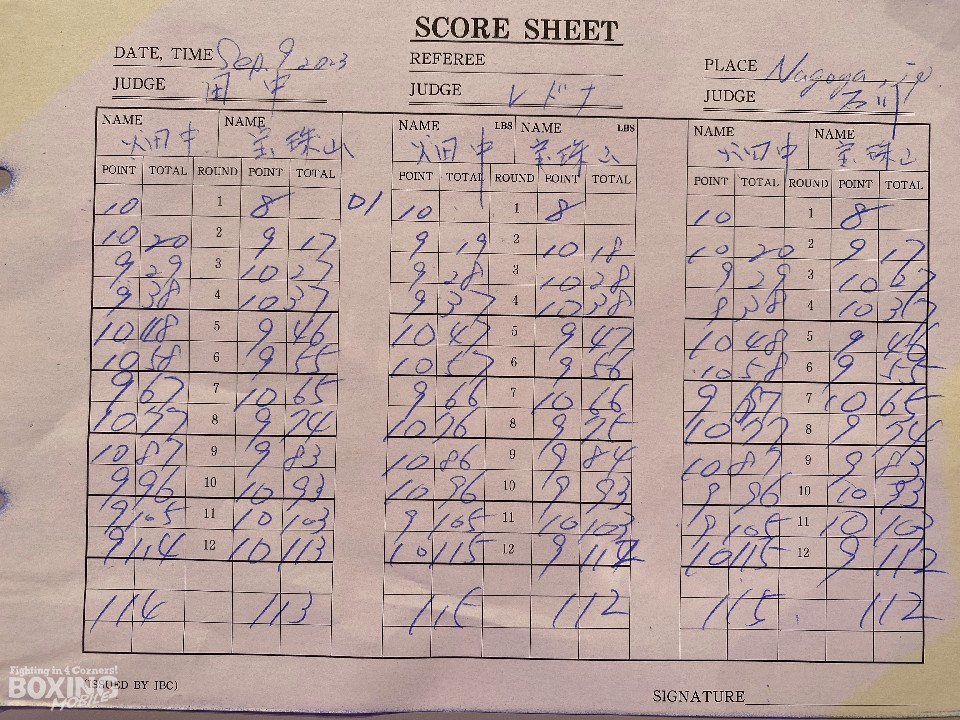 SCORE SHEET
DATE, TIME Sep. 9 2023
REFEREE
PLACE Nagoya,
JUDGE 田中
JUDGE レドナ
JUDGE
NAME 畑中 NAME 宝珠山
NAME 畑中 LBS NAME 宝珠山 LBS
NAME 畑中 NAME 宝珠山
POINT TOTAL ROUND POINT TOTAL POINT TOTAL ROUND POINT TOTAL POINT TOTAL ROUND POINT TOTAL
10 1 8 D1 10 1 8 10 1 8
10 20 2 9 17 9 19 2 10 18 10 20 2 9 17
9 29 3 10 27 9 28 3 10 28 9 29 3 10 27
9 38 4 10 37 9 37 4 10 38 8 38 4 10 37
10 48 5 9 46 10 47 5 9 47 10 48 5 9 46
10 58 6 9 55 10 57 6 9 56 10 58 6 9 55
9 67 7 10 65 9 66 7 10 66 9 67 7 10 65
10 77 8 9 74 10 76 8 9 75 10 77 8 9 74
10 87 9 9 83 10 86 9 9 84 10 87 9 9 83
9 96 10 10 93 10 96 10 9 93 9 96 10 10 93
9 105 11 10 103 9 105 11 10 103 9 105 11 10 103
9 114 12 10 113 10 115 12 9 112 10 115 12 9 112
114 113 115 112 115 112
(ISSUED BY JBC)
SIGNATURE
Fighting in 4 Corners!
BOXING
MOBILE